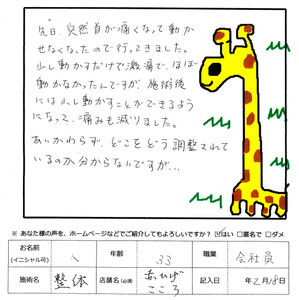 先日、突然首が痛くなって動か
せなくなったので行ってきました。
少し動かすだけで激痛で、ほぼ
動かなかったんですが、施術後
には少し動かすことができるよう
になって、痛みも減りました。
あいかわらず、どこをどう調整されて
いるのか分からないですが…
※ あなた様の声を、ホームページなどでご紹介してもよろしいですか？ ☑はい □匿名で □ダメ
お名前 (イニシャル可) 年齢 33 職業 会社員
施術名 整体 店舗名(必須) 赤ひげ こころ 記入日 年2月18日